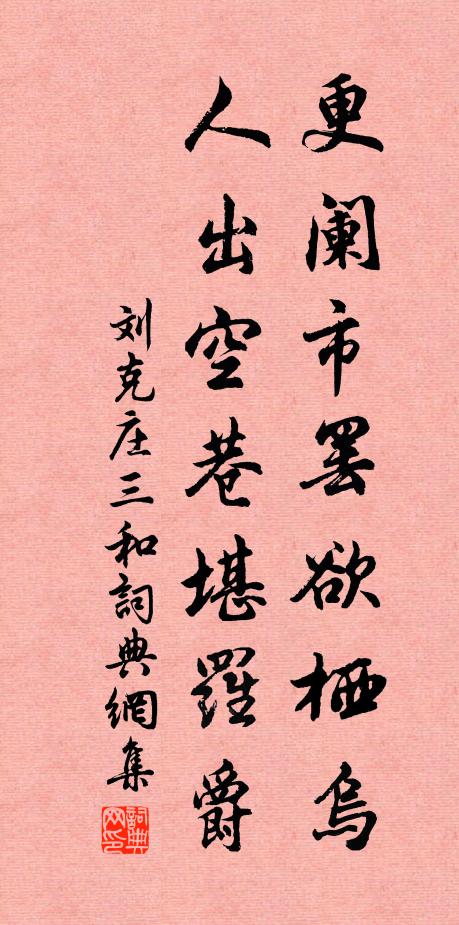 更阑市罢欲栖乌
人出空巷堪罗爵
刘克庄三和詞典網集
詞典
网印